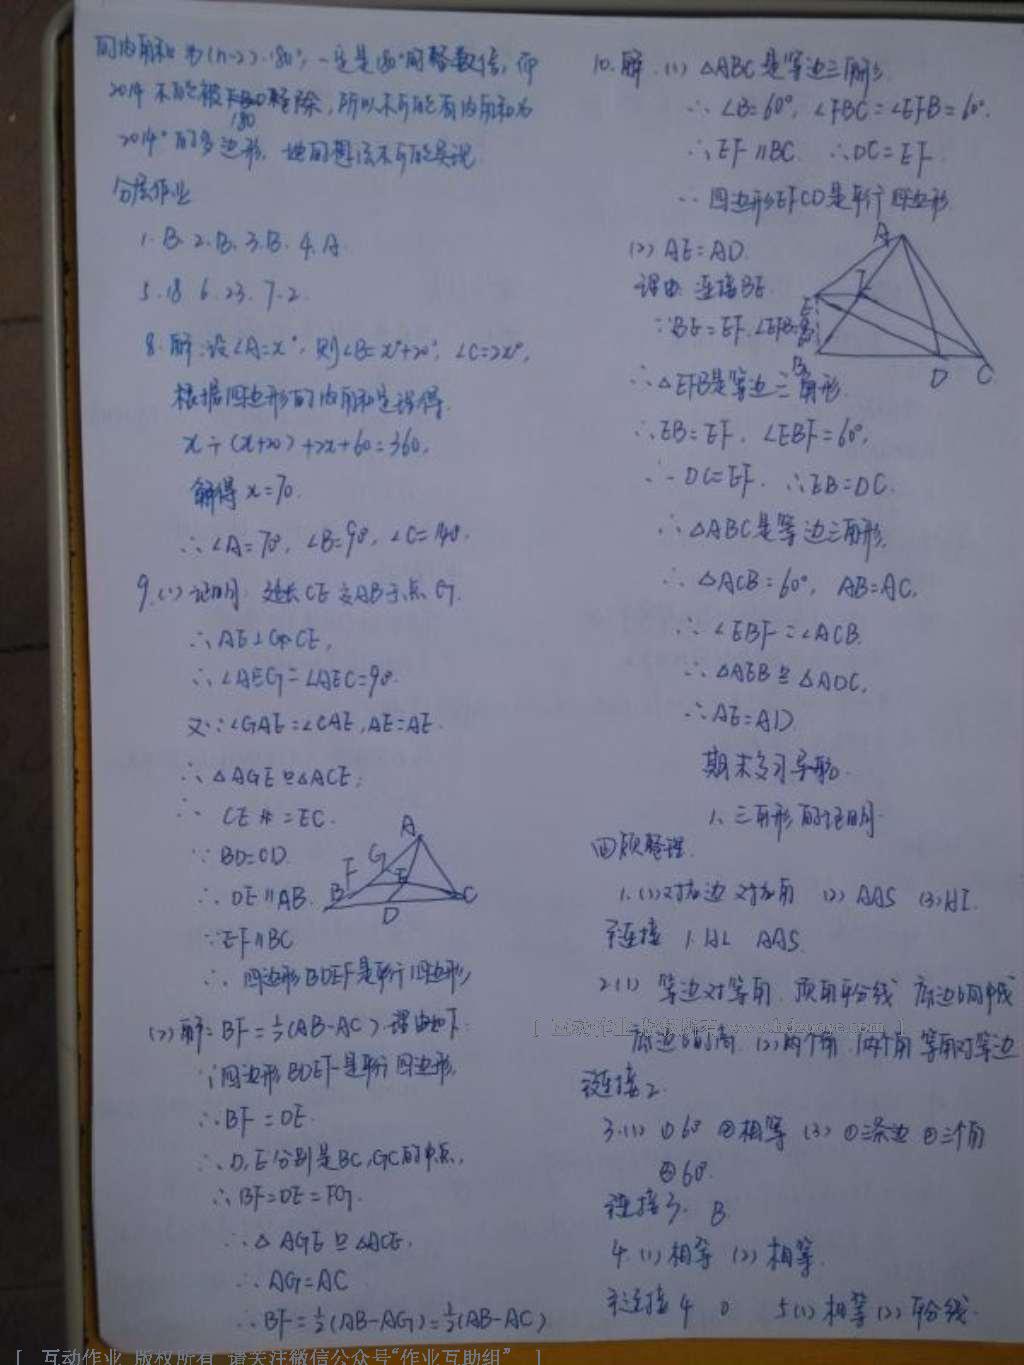 同内角和为(n-2)·180°,一定是180°的整数倍,而
2014不能被180整除,所以不可能有内角和为
2014°的多边形,她的想法不可能实现.
分层作业
1.B. 2.B. 3.B. 4.A.
5.18 6.23. 7.2.
8.解:设∠A=x°,则∠B=x°+20°,∠C=2x°,
根据四边形的内角和定理得.
x+(x+20)+2x+60=360,
解得x=70.
∴∠A=70°,∠B=90°,∠C=140°.
9.(1)证明:延长CE交AB于点G.
∴AE⊥CE,
∴∠AEG=∠AEC=90°.
又∵∠GAE=∠CAE,AE=AE.
∴△AGE≌△ACE,
∴ CE=EC.
∵BD=CD.
∴DE∥AB.
∵EF∥BC
∴四边形BDEF是平行四边形,
(2)解:BF=½(AB-AC)理由如下:
∵四边形BDEF是平行四边形,
∴BF=DE.
∴D,E分别是BC,GC的中点,
∴BF=DE=FG.
∴△AGE≌△ACE,
∴AG=AC
∴BF=½(AB-AG)=½(AB-AC)
A
G
F
E
B
C
D
10.解.(1)△ABC是等边三角形,
∴∠B=60°,∠FBC=∠EFB=60°.
∴EF∥BC. ∴DC=EF.
∴四边形EFCD是平行四边形.
(2)AE=AD.
理由:连接BE.
∵BE=EF,∠EFB=60°
∴△EFB是等边三角形.
∴EB=EF,∠EBF=60°,
∴DC=EF,∴EB=DC.
∴△ABC是等边三角形,
∴△ACB=60°,AB=AC,
∴∠EBF=∠ACB.
∴△AEB≌△ADC,
∴AE=AD.
A
F
E
B
D
C
期末复习导航
1、三角形的证明
回顾整理.
1.(1)对应边 对应角 (2)AAS (3)HL
连接 1.HL AAS.
2.(1)等边对等角.顶角平分线 底边的中线
底边的高.(2)两个角.两个角 等角对等边
连接2.
3.(1)①60°②相等(3)①三条边②三个角
③60°.
连接3. B
4.(1)相等(2)相等.
连接4 D 5(1)相等(2)平分线.
[ 互动作业 版权所有 www.hdzuoye.com ]
[ 互动作业 版权所有 请关注微信公众号“作业互助组” ]